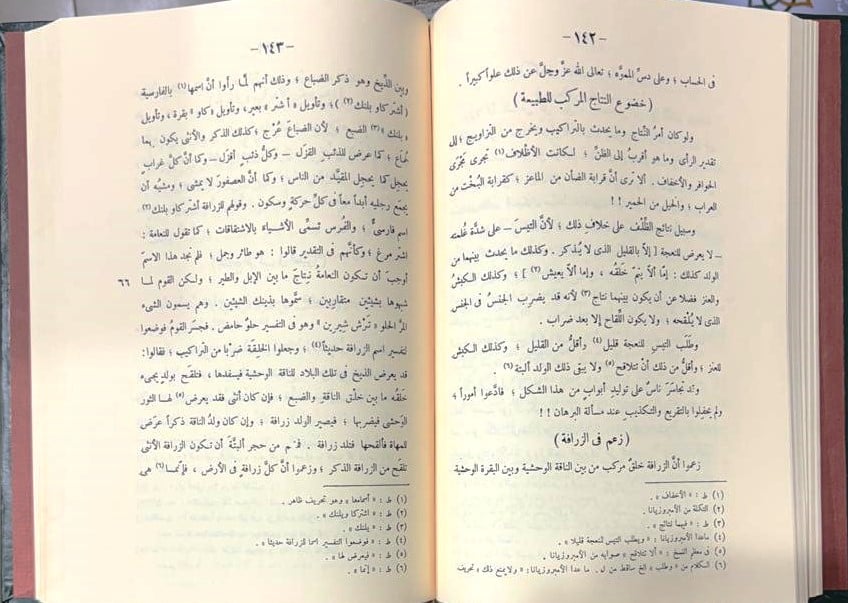 —١٤٢—
فى الحساب ؛ وعلى دسِّ المعزَّه ؛ تعالى الله عزَّ وجلَّ عن ذلك علواً كبيراً .
( خضوع النتاج المركب للطبيعة )
ولو كان أمرُ النِّتاج وما يحدث بالتراكيب ويخرج من التزاويج ؛ إلى
تقدير الرأى وما هو أقرب إلى الظنّ ؛ لكانت الأظْلاف (١) تجرى مجْرَى
الحوافر والأخفاف . ألا ترى أن قرابة الضأن من الماعز ؛ كقرابة البُخْت من
العراب ؛ والخيل من الحمير !!
وسبيل نتائج الظِّلْف على خلاف ذلك ؛ لأنَّ التيسَ ــ على شدَّة غُلمته
ــ لا يعرض للنعجة [ إلاّ بالقليل الذى لا يُذكر . وكذلك ما يحدث بينهما من
الولد كذلك : إمّا ألا يتمّ خَلْقُه ، وإما ألاَّ يعيش (٢) ] ؛ وكذلك الكبش
والعنز فضلا عن أن يكون بينهما نتاج (٣) لأنه قد يضرِب الجِنْسُ فى الجنس
الذى لا يُلْقحه ؛ ولا يكون اللِّقاح إلا بعد ضراب .
وطَلَب التيسِ للنعجة قليل (٤) وأقلُّ من القليل ؛ وكذلك الكبش
للعنز ؛ وأقلُّ من ذلك أنْ تتلاقح (٥) ولا يبقى ذلك الولد ألبتة (٦) .
وقد تجاسَرَ ناسٌ على توليدِ أبوابٍ من هذا الشكل ؛ فادَّعوا أموراً ؛
ولم يحفِلوا بالتقريع والتكذيب عند مسألة البرهان !!
( زعم فى الزرافة )
زعموا أنَّ الزرافة خلقٌ مركب من بين الناقة الوحشية وبين البقرة الوحشية
(١) ط : « الأخفاف » .
(٢) التكملة من الأمبروزيانا .
(٣) ط : « فيهما نتائج » .
(٤) ماعدا الأمبروزيانا : « ويطلب التيس للنعجة قليلا » .
(٥) فى معظم النسخ : « ألا تتلاقح » صوابه من الأمبروزيانا .
(٦) الكلام من « وطلب » الخ ساقط من ل . ما عدا الأمبروزيانا : « ولا يمنع ذلك » تحريف
—١٤٣—
وبين الذِّيخ وهو ذكر الضباع ؛ وذلك أنهم لمّا رأوا أنَّ اسمها (١) بالفارسية
( أشتر كاو بلنك (٢) ) ؛ وتأويل « أشتر » بعير ، وتأويل « كاو » بقرة ، وتأويل
« بلنك » (٣) الضبع ؛ لأن الضباعَ عُرْج ؛ كذلك الذكر والأنثى يكون بهما
خُماع ؛ كما عرض للذئب القزَل ــ وكلُّ ذئب أقزل ــ وكما أنَّ كلَّ غراب
يحجل كما يحجل المقيَّد من الناس ؛ وكما أنَّ العصفورَ لا يمشى ؛ ومشيُه أن
يجمَع رجليه أبداً معاً فى كلِّ حركةٍ وسكون . وقولهم للزرافة أشتر كاو بلنك (٢)
اسم فارسىٌّ ؛ والفُرْس تسمِّى الأشياء بالاشتقاقات ؛ كما تقول للنعامة :
اشتر مرغ ؛ وكأنَّهم فى التقدير قالوا : هو طائر وجمل ؛ فلم نجد هذا الاسمَ
أوجبَ أن تكون النعامةُ نِتاجَ ما بين الإبل والطير ؛ ولكن القوم لما
٦٦
شبهوها بشيئين متقاربين ؛ سَمَّوها بذينك الشيئين . وهم يسمون الشىء
المرَّ الحلو « تَرْش شيرين » وهو فى التفسير حلوٌ حامض . فجسَر القومُ فوضعوا
لتفسير اسم الزرافة حديثاً (٤) ؛ وجعلوا الخِلقَة ضرْباً من التراكيب ؛ فقالوا :
قد يعرض الذيخ فى تلك البلاد للناقة الوحشية فيسفدها ، فتلقح بولدٍ يجىء
خَلْقُه ما بين خلق الناقة والضبع ؛ فإن كان أنثى فقد يعرض (٥) لها الثور
الوَحشى فيضربها ؛ فيصير الولد زرافة ؛ وإن كان ولدُ الناقة ذكراً عَرَضَ
للمهاة فألقحها فتلد زرافة . فمنهم من حجر ألبتَّةَ أن تكون الزرافة الأنثى
تلقح من الزرافة الذكر ؛ وزعموا أنَّ كلَّ زرافةٍ فى الأرض ، فإنّما (٦) هى
(١) ط : « أسمامها » وهو تحريف ظاهر .
(٢) ط : « اشتركا ويلنك » .
(٣) ط : « يلنك » .
(٤) ط : « فوضعوا التفسير اسما للزرافة حديثا » .
(٥) ط : « فيعرض لها » .
(٦) ط : « إنما » .